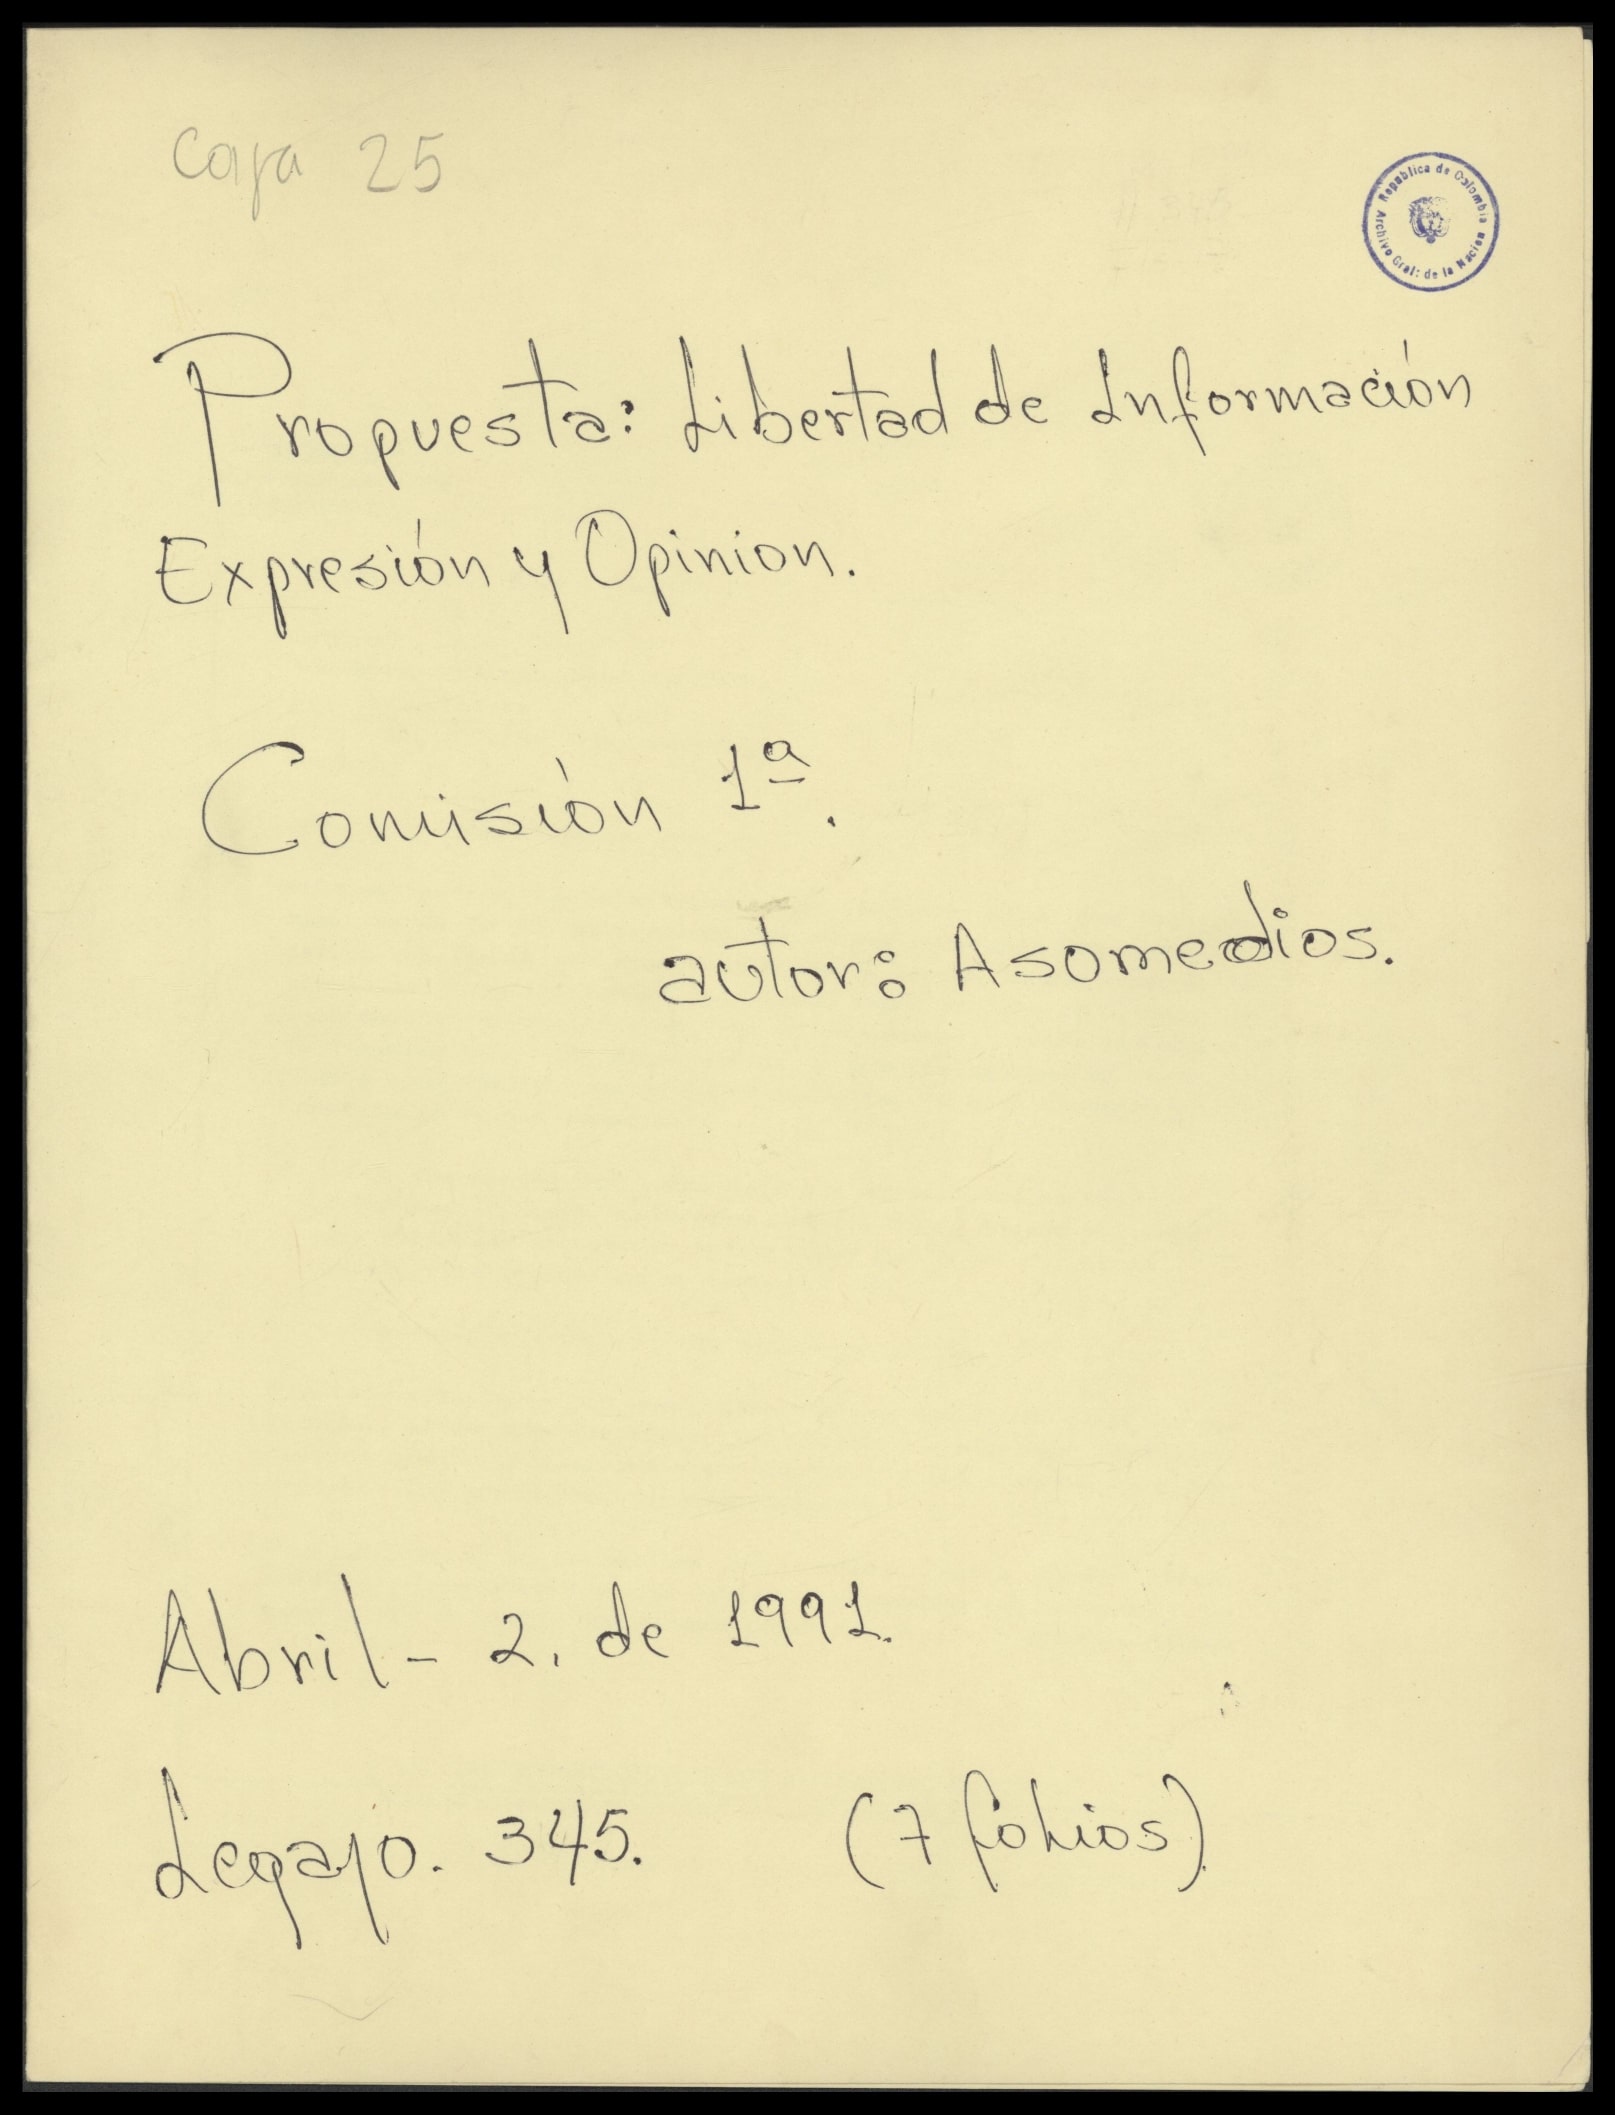 Caja 25
República de Colombia
Archivo Gral: de la Nación
Propuesta: Libertad de Información
Expresión y Opinion.
Comisión 1ª.
autor: Asomedios.
Abril - 2. de 1991.
Legajo. 345. (7 folios).